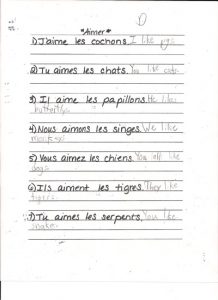 "Aimer"
1) J'aime les cochons. I like pigs
2) Tu aimes les chats. You like cats.
3) Il aime les papillons. He likes
butterflys.
4) Nous aimons les singes. We like
monkeys
5) Vous aimez les chiens. You all like
dogs
6) Ils aiment les tigres. They like
tigers.
7) Tu aimes les serpents. You like
snakes